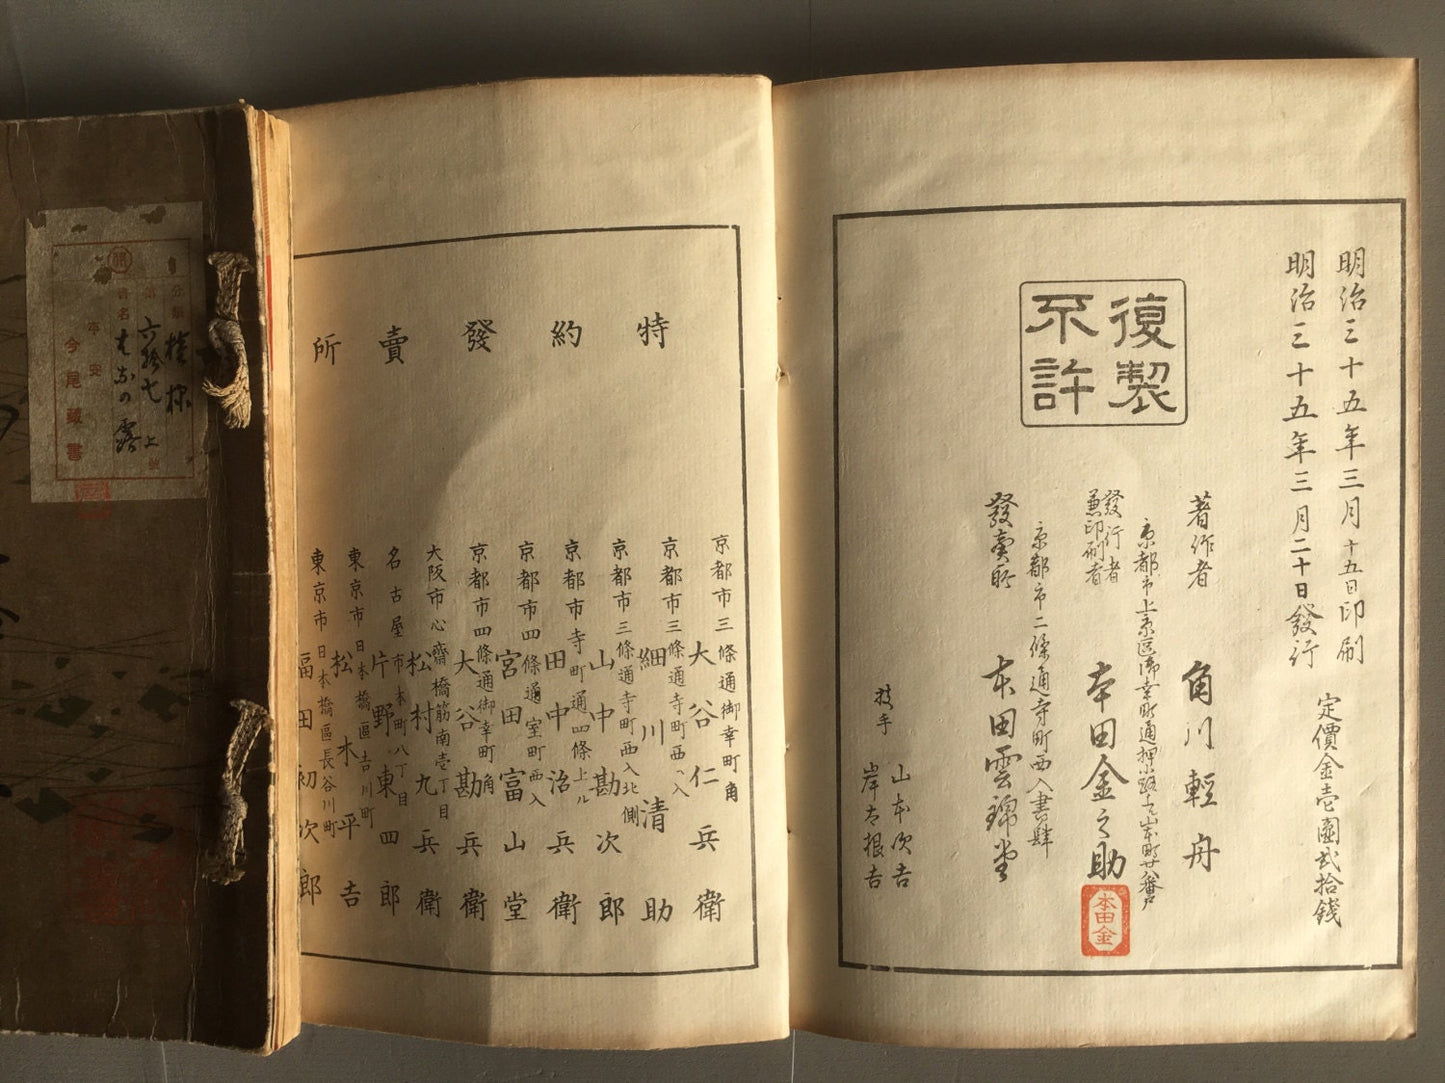 明治三十五年三月十五日印刷
明治三十五年三月二十日發行
定價金壱圓弐拾錢
復製
不許
著作者 角川輕舟
京都市上京區御幸町通押小路上ル山本町廿八番戸
發行者
兼印刷者
本田金之助
本田金
京都市二條通寺町西入書肆
發賣所 本田雲錦堂
技手
山本次吉
岸本根吉
特約發賣所
京都市三條通御幸町角
大谷仁兵衛
京都市三條通寺町西入
細川清助
京都市三條通寺町西入北側
山中勘次郎
京都市寺町通四條上ル
田中治兵衛
京都市四條通室町西入
宮田富山堂
京都市四條通御幸町角
大谷勘兵衛
大阪市心齋橋筋南壱丁目
松村九兵衛
名古屋市本町八丁目
片野東四郎
東京市日本橋區吉川町
松木平吉
東京市日本橋區長谷川町
福田初次郎
分類
第六拾七上號
書名
今尾藏書